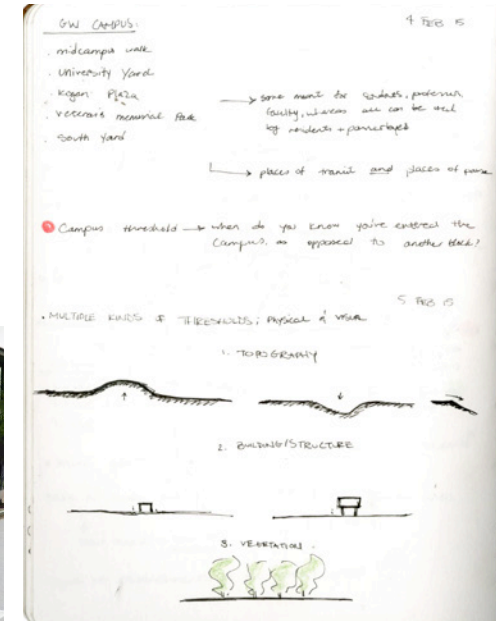 GW CAMPUS:
4 FEB 15
. midcampus walk
. University Yard
. Kogan Plaza
. veterans memorial Park
. South Yard
→ some meant for students, professors,
faculty, whereas all can be used
by residents + passersby
→ places of transit and places of pause
Campus threshold → when do you know you've entered the
Campus, as opposed to another block?
5 FEB 15
. MULTIPLE KINDS OF THRESHOLDS; PHYSICAL & VISUAL
1. TOPOGRAPHY
2. BUILDING/STRUCTURE
3. VEGETATION.